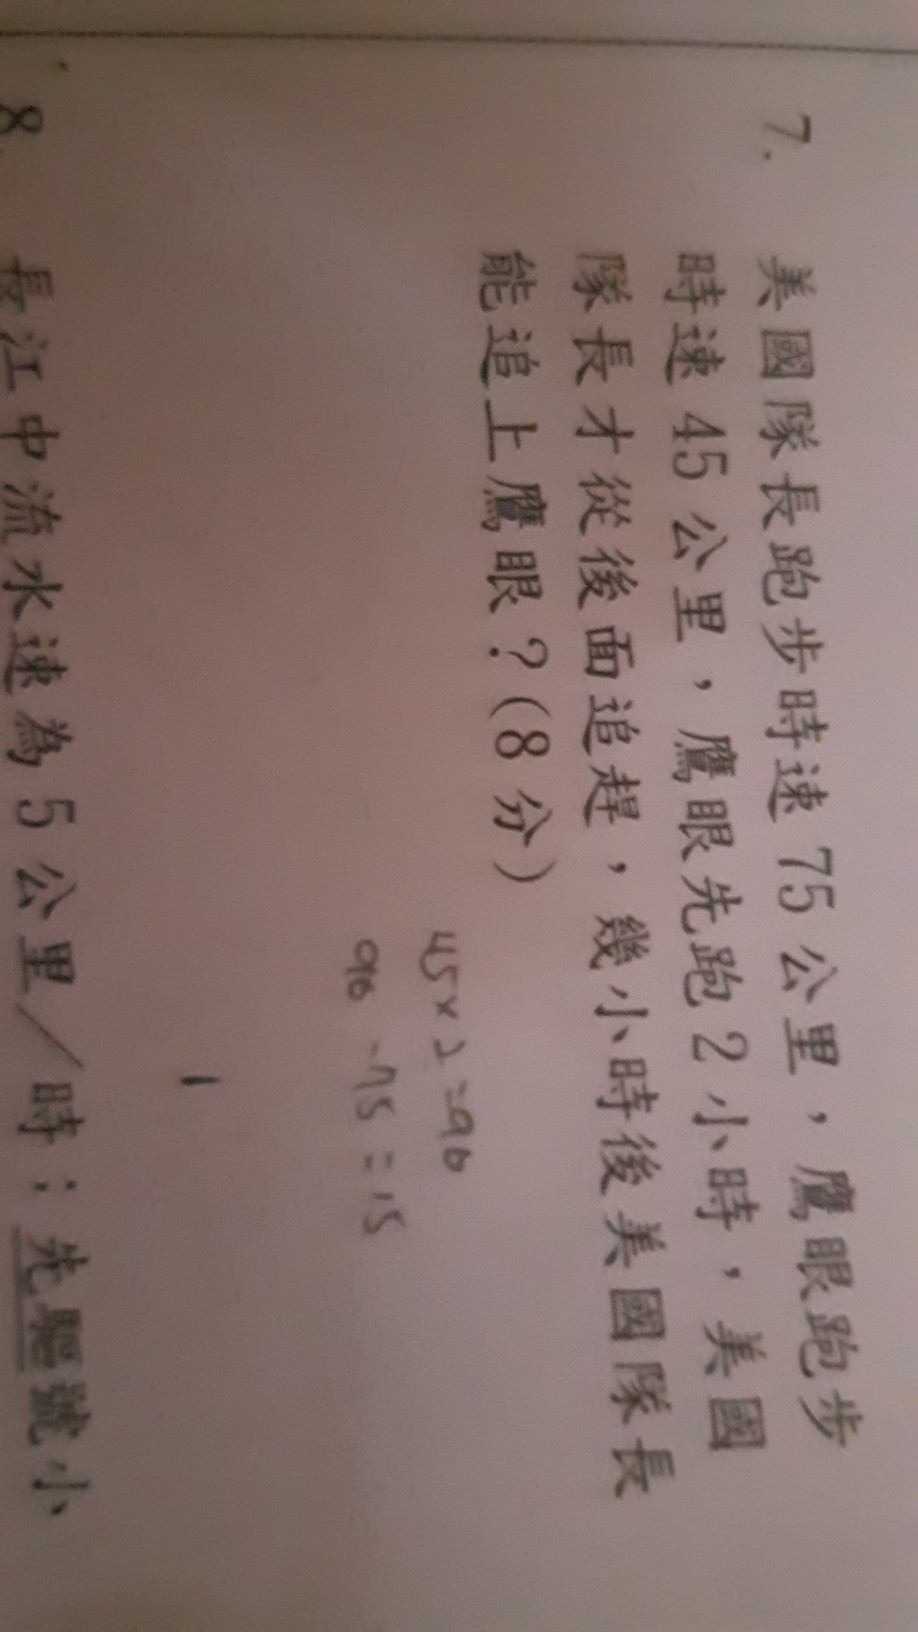 7. 美國隊長跑步時速 75 公里，鷹眼跑步
時速 45 公里，鷹眼先跑 2 小時，美國
隊長才從後面追趕，幾小時後美國隊長
能追上鷹眼？(8 分)
45×2=90
90-75=15
8. 長江中流水速為 5 公里／時；先驅號小